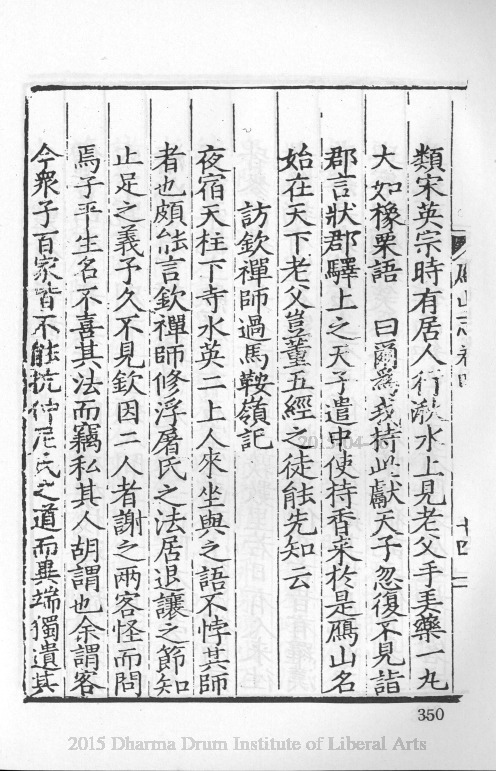 類宋英宗時有居人行㵎水上見老父手弄藥一丸
大如橡栗語 曰爾為我持此獻天子忽復不見詣
郡言狀郡驛上之天子遣中使持香來於是鴈山名
始在天下老父豈董五經之徒能先知云
訪欽禪師過馬鞍嶺記
夜宿天柱下寺水英二上人來坐與之語不悖其師
者也頗能言欽禪師修浮屠氏之法居退讓之節知
止足之義予久不見欽因二人者謝之兩客怪而問
焉子平生名不喜其法而竊私其人胡謂也余謂客
今衆子百家皆不能抗仲尼氏之道而異端獨遺其
鴈山志卷四
十四
350
2015 Dharma Drum Institute of Liberal Arts